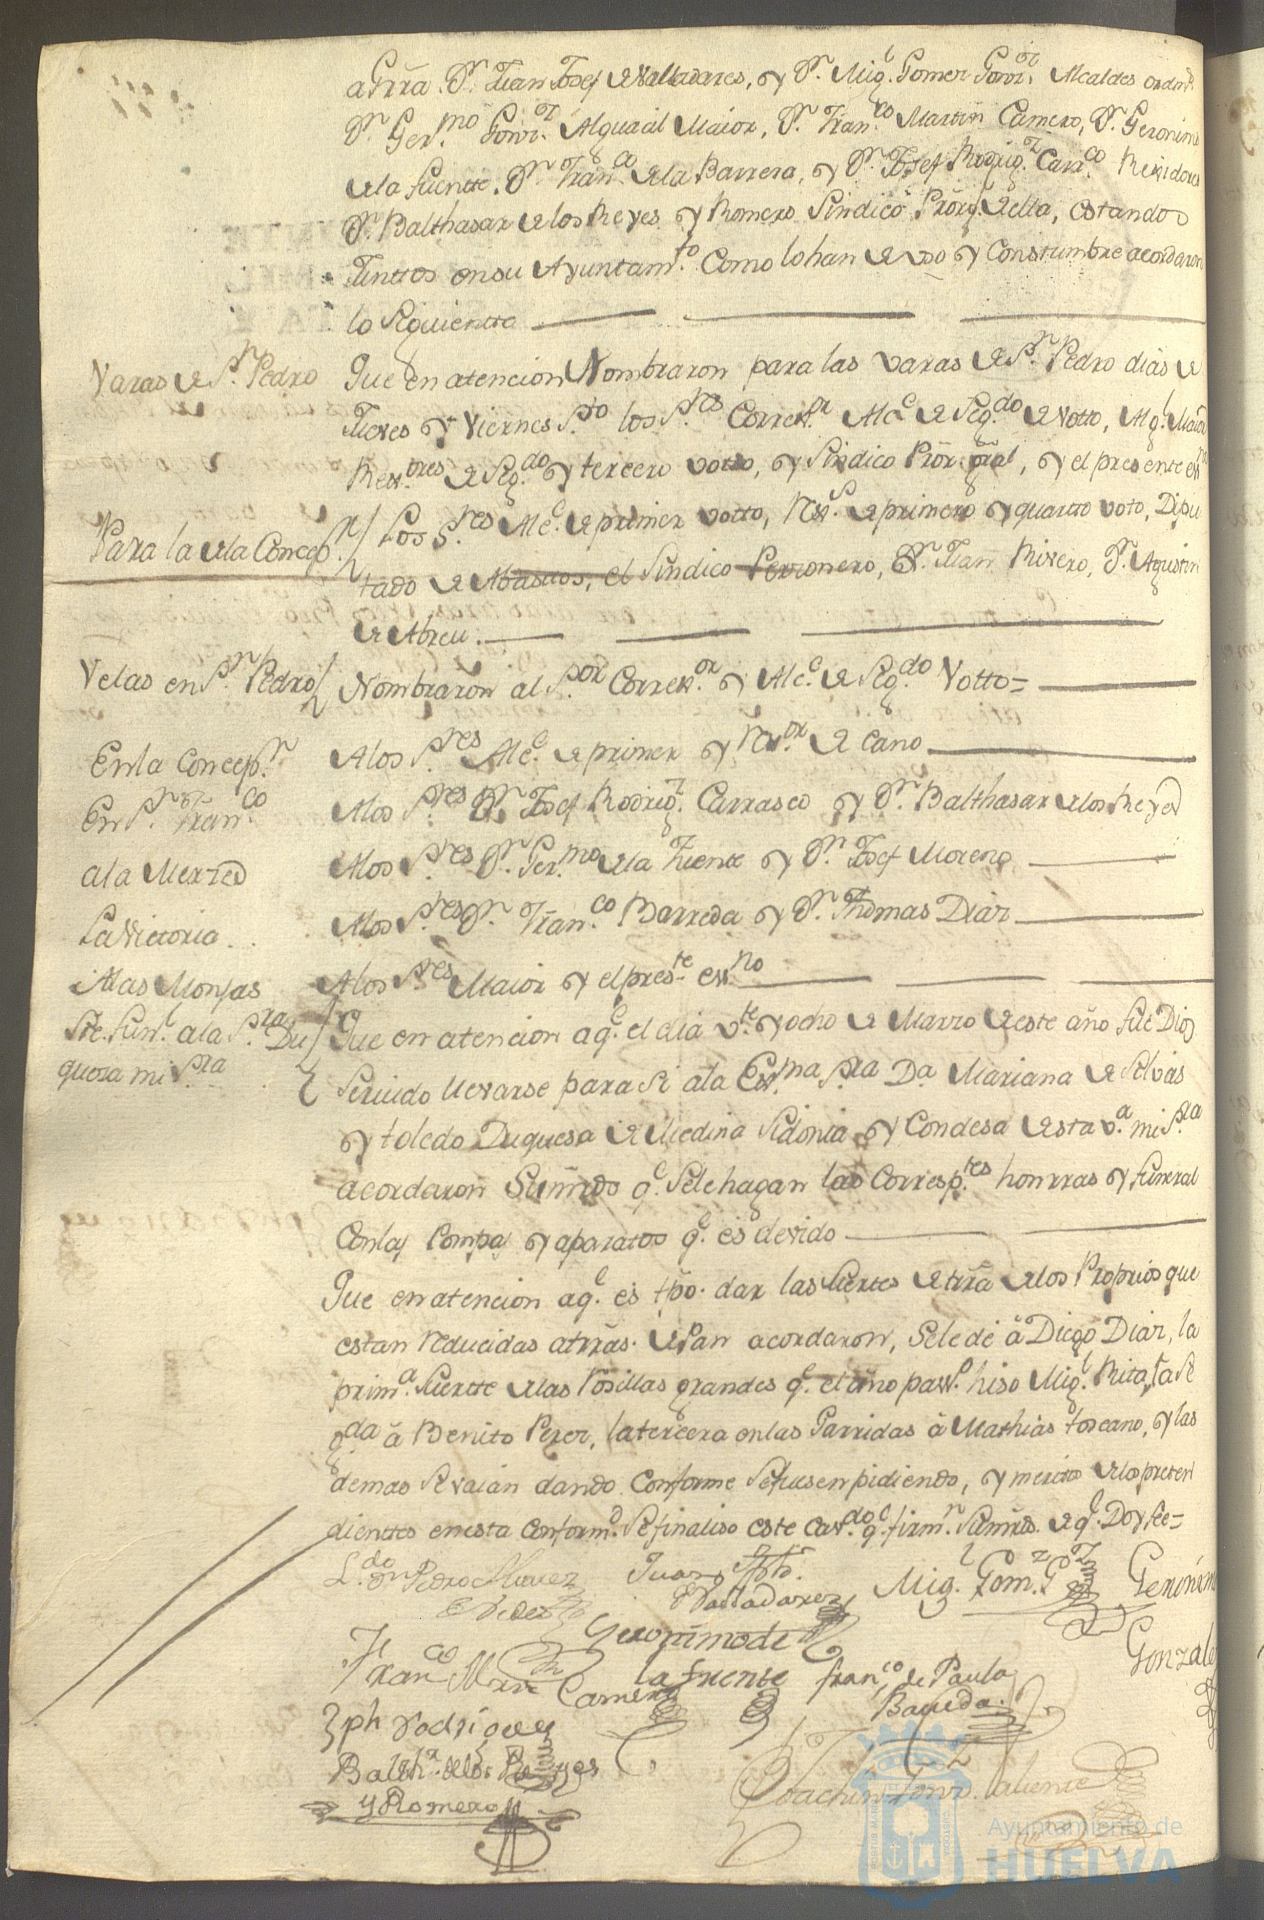 a Grra. Dn. Juan Josef de Valladares, y Dn. Migl. Gomez Gonz. Alcaldes ordins.
Dn. Germo. Gonz. Alguazil Maior, Dn. Franco. Martin Camero, Dn. Geronimo
de la fuente, Dn. Franco. de la Barrera, y Dn. Josef Rodrigz. Carrco. Rexidores
Dn. Balthasar de los Reyes y Romero Sindico Prorgl. de ella, estando
Juntos en su Ayuntamto. Como lo han de uso y Constumbre acordaron
lo Siguiente
Varas de Sn. Pedro Que en atencion Nombraron para las varas de Sn. Pedro dias de
Jueves y Viernes Sto. los Sres. Correxr. Alce. de Segdo. de Votto, Algl. Maior
Rexores. de Segdo. y tercero votto, y Sindico Pror. gral, y el presente essno
Para la de la Concepn. Los Sres. Alce. de primer votto, Rexs. de primero y quarto voto, Dipu
tado de Abastos, el Sindico Personero, Dn. Juan Rivero, Dn. Agustin
de Abreu.
Velas en Sn. Pedro Nombraron al Sor. Correxor. y Alce. de Segdo. Votto=
En la Concepn. A los Sres. Alce. de primer y Rexor. de Cano
En Sn. Franco. A los Sres. Dn. Josef Rodrigz. Carrasco y Dn. Balthasar de los Reyes
a la Merzed A los Sres. Dn. Germo. de la Fuente y Dn. Josef Moreno
La Victoria. A los Sres. Dn. Franco. Barreda y Dn. Thomas Diaz
A las Monjas A los Sres. Maior y el preste. essno
Sre. Funl. a la Sra. Du Que en atencion a qe. el dia vte. y ocho de Marzo de este año fue Dios
quesa mi Sra. Servido llevarse para Si a la Exma. Sra. Da. Mariana de Silvas
y toledo Duquesa de Medina Sidonia y Condesa de esta va. mi Sra.
acordaron Su mrds qe. Se le hagan las Corresptes. honrras y funeral
Con las Pompas y aparatos qe. es devido
Que en atencion a qe. es tpo. dar las Suertes de trra de los Proprios que
estan reducidas a trras. de Pan acordaron, Se le dé â Diego Diaz, la
prima. Suerte de las Rosillas grandes qe. el año passo. hiso Migl. Rita, la Se
gda. â Benito Perez, la tercera en las Garridas â Mathias toscano, y las
demas Se vaian dando Conforme Se fuesen pidiendo, y merito de los preten
dientes en esta Conformd. Se finaliso este Cavdo. qe. firmn. Su mrds. de qe. Doy fee=
Ldo. Dn. Pedro Alvarez Juan Jph. Migl. Gomz. Gz. Gerónimo
Valladarez
Geronimo de Gonzalez
Franco. Mrn Camero la fuente franco. de Paula
Jph rodriguez Barreda
Balthr. de los Reyes Joachin Gonz. Valiente
y Romero
Ayuntamiento de
HUELVA